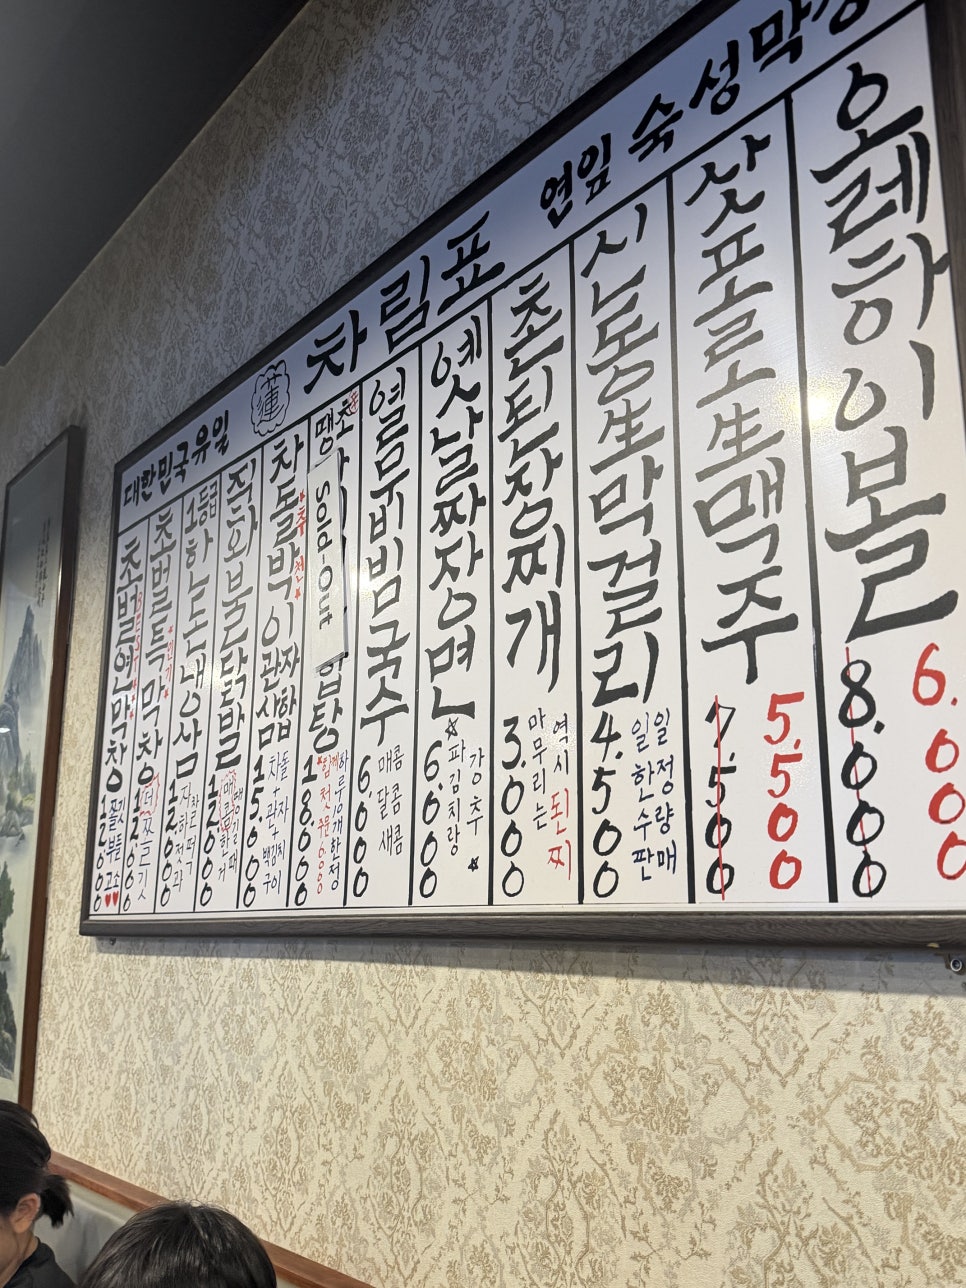 대한민국유일 蓮 차림표 연잎 숙성 막창
초벌연막창 BEST
쫄깃 쫀득 고소♥♥
초벌특막창 ★인기★
1등급하는도냉삼
12.000
직화불닭발
차돌박이관자삼합 ★추천★
차돌+관자+백김치구이
15.000
땡초 Sold-Out 합탕
하루10개한정
18.000
열무비빔국수
매콤 달콤 새콤
6.000
옛날짜장면
☆강추☆
파김치랑
6.000
촌된장찌개
역시 된찌
마무리는
3.000
신동生막걸리
일정수량
일한판매
4.500
삿포로生맥주
7.500
5.500
오레하이볼
8.000
6.000